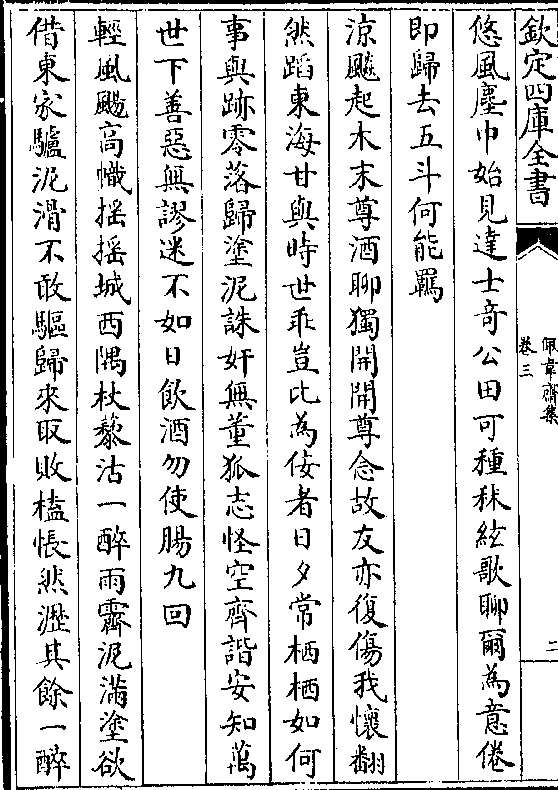 欽定四庫全書
佩韋齋集
卷三
二
悠風塵中始見達士奇公田可種秫絃歌聊爾為意倦
即歸去五斗何能羈
涼飈起木末尊酒聊獨開開尊念故友亦復傷我懷翻
然蹈東海甘與時世乖豈比為佞者日夕常栖栖如何
事與跡零落歸塗泥誅奸無董狐志怪空齊諧安知萬
世下善惡無謬迷不如日飲酒勿使腸九回
輕風颺高幟揺揺城西隅杖藜沽一醉雨霽泥滿塗欲
借東家驢泥滑不敢驅歸來取敗榼悵然瀝其餘一醉